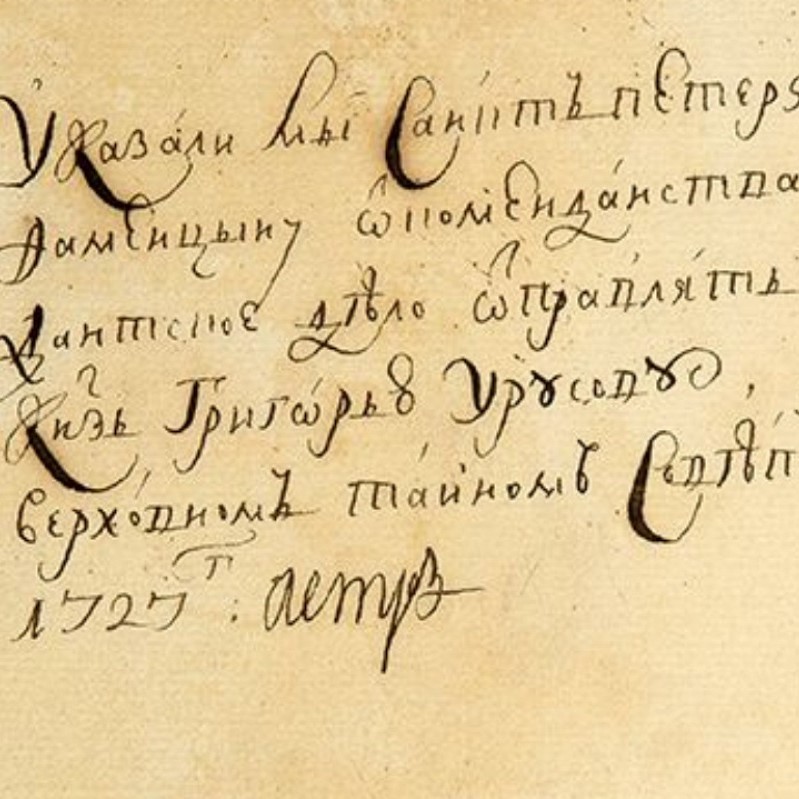 Указали мы Санктъ петерб
Фаминцыну ѡ комендантства
дантское дѣло ѿправлять
Кнзь Григѡрью Урусову,
верховномъ тайномъ Совѣт
1727 г. Петръ